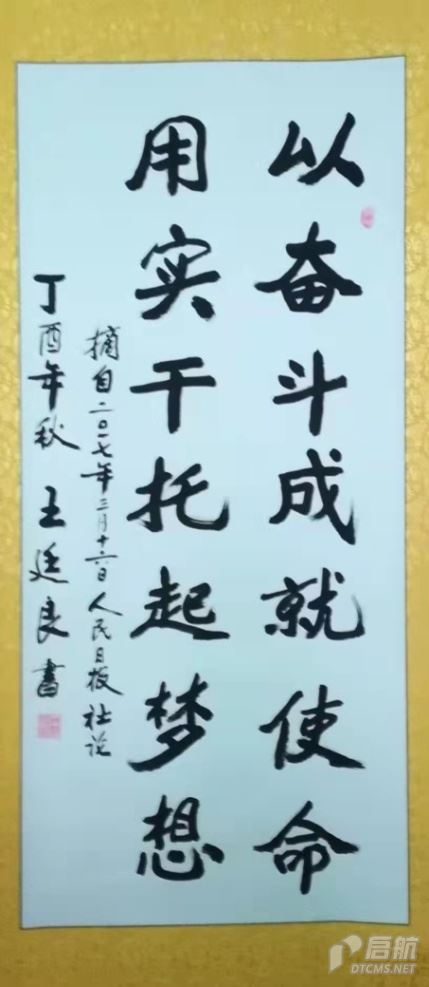 以奋斗成就使命
用实干托起梦想
摘自二〇一七年三月十六日人民日报社说
丁酉年秋 王廷良書
启航
DTCMS.NET